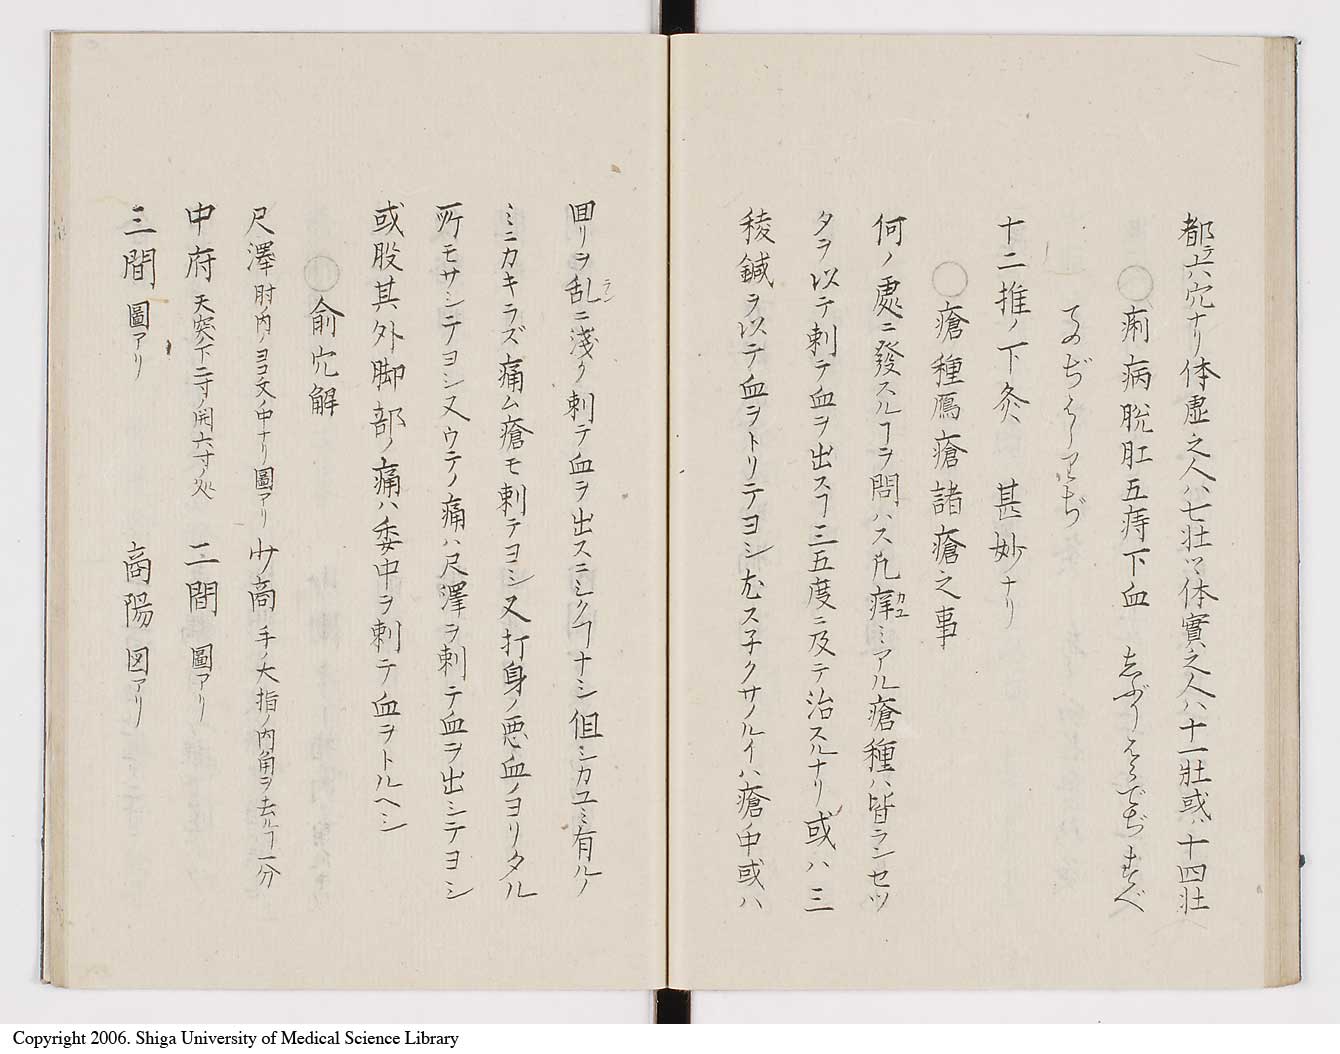 都テ六穴ナリ体虚之人ハ七壮ツヽ体實之人ハ十一壮或ハ十四壮
○痢病脱肛五痔下血
十二推ノ下灸 甚妙ナリ
○瘡種鴈瘡諸瘡之事
何ノ處ニ發スルヿヲ問ハス凡痒カユミアル瘡種ハ皆ランセツ
タヲ以テ刺テ血ヲ出スヿ三五度ニ及テ治スルナリ或ハ三
稜鍼ヲ以テ血ヲトリテヨシ クサノルイハ瘡中或ハ
回リヲ乱ニ淺ク刺テ血ヲ出スニシクヿナシ但シカユミ有ルノ
ミニカキラズ痛ム瘡モ刺テヨシ又打身ノ悪血ノヨリタル
所モサシテヨシ又ウテノ痛ハ尺澤ヲ刺テ血ヲ出シテヨシ
或股其外脚部ノ痛ハ委中ヲ刺テ血ヲトルヘシ
○俞穴解
尺澤 肘ノ内ノヨコ文ノ中ナリ圖アリ 少商 手ノ大指ノ内角ヲ去ルヿ一分
中府 天突ノ下二寸ノ開六寸ノ処 二間 圖アリ
三間 圖アリ 商陽 図アリ
Copyright 2006. Shiga University of Medical Science Library